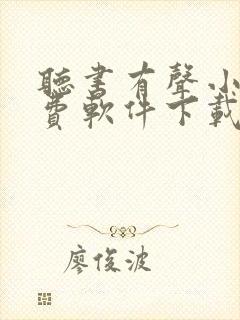 聽書有聲小
費軟件下載
廖俊波